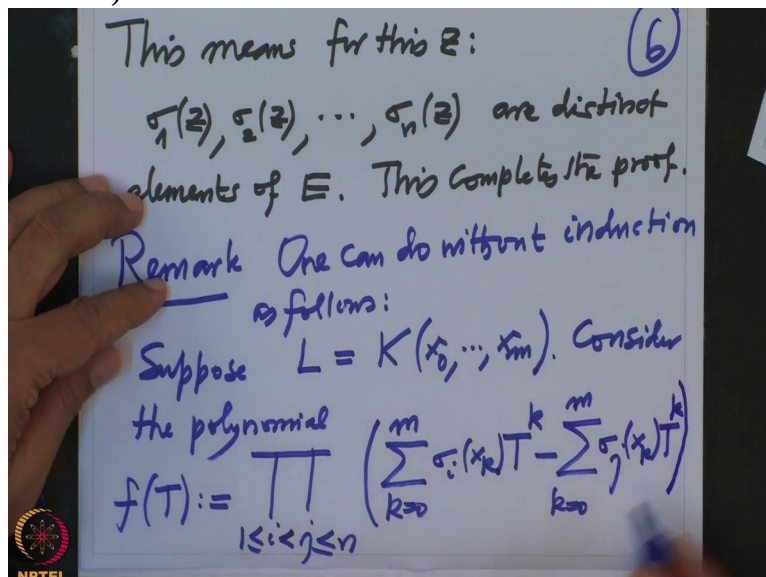 This means for this z:
6
σ₁(z), σ₂(z), ..., σₙ(z) are distinct
elements of E. This completes the proof.
Remark One can do without induction
as follows:
Suppose L = K(x₀, ..., xₘ). Consider
the polynomial
f(T) := ∏_{1≤i<j≤n} (∑_{k=0}^{m} σᵢ(xₖ)T^k - ∑_{k=0}^{m} σⱼ(xₖ)T^k)
NPTEL